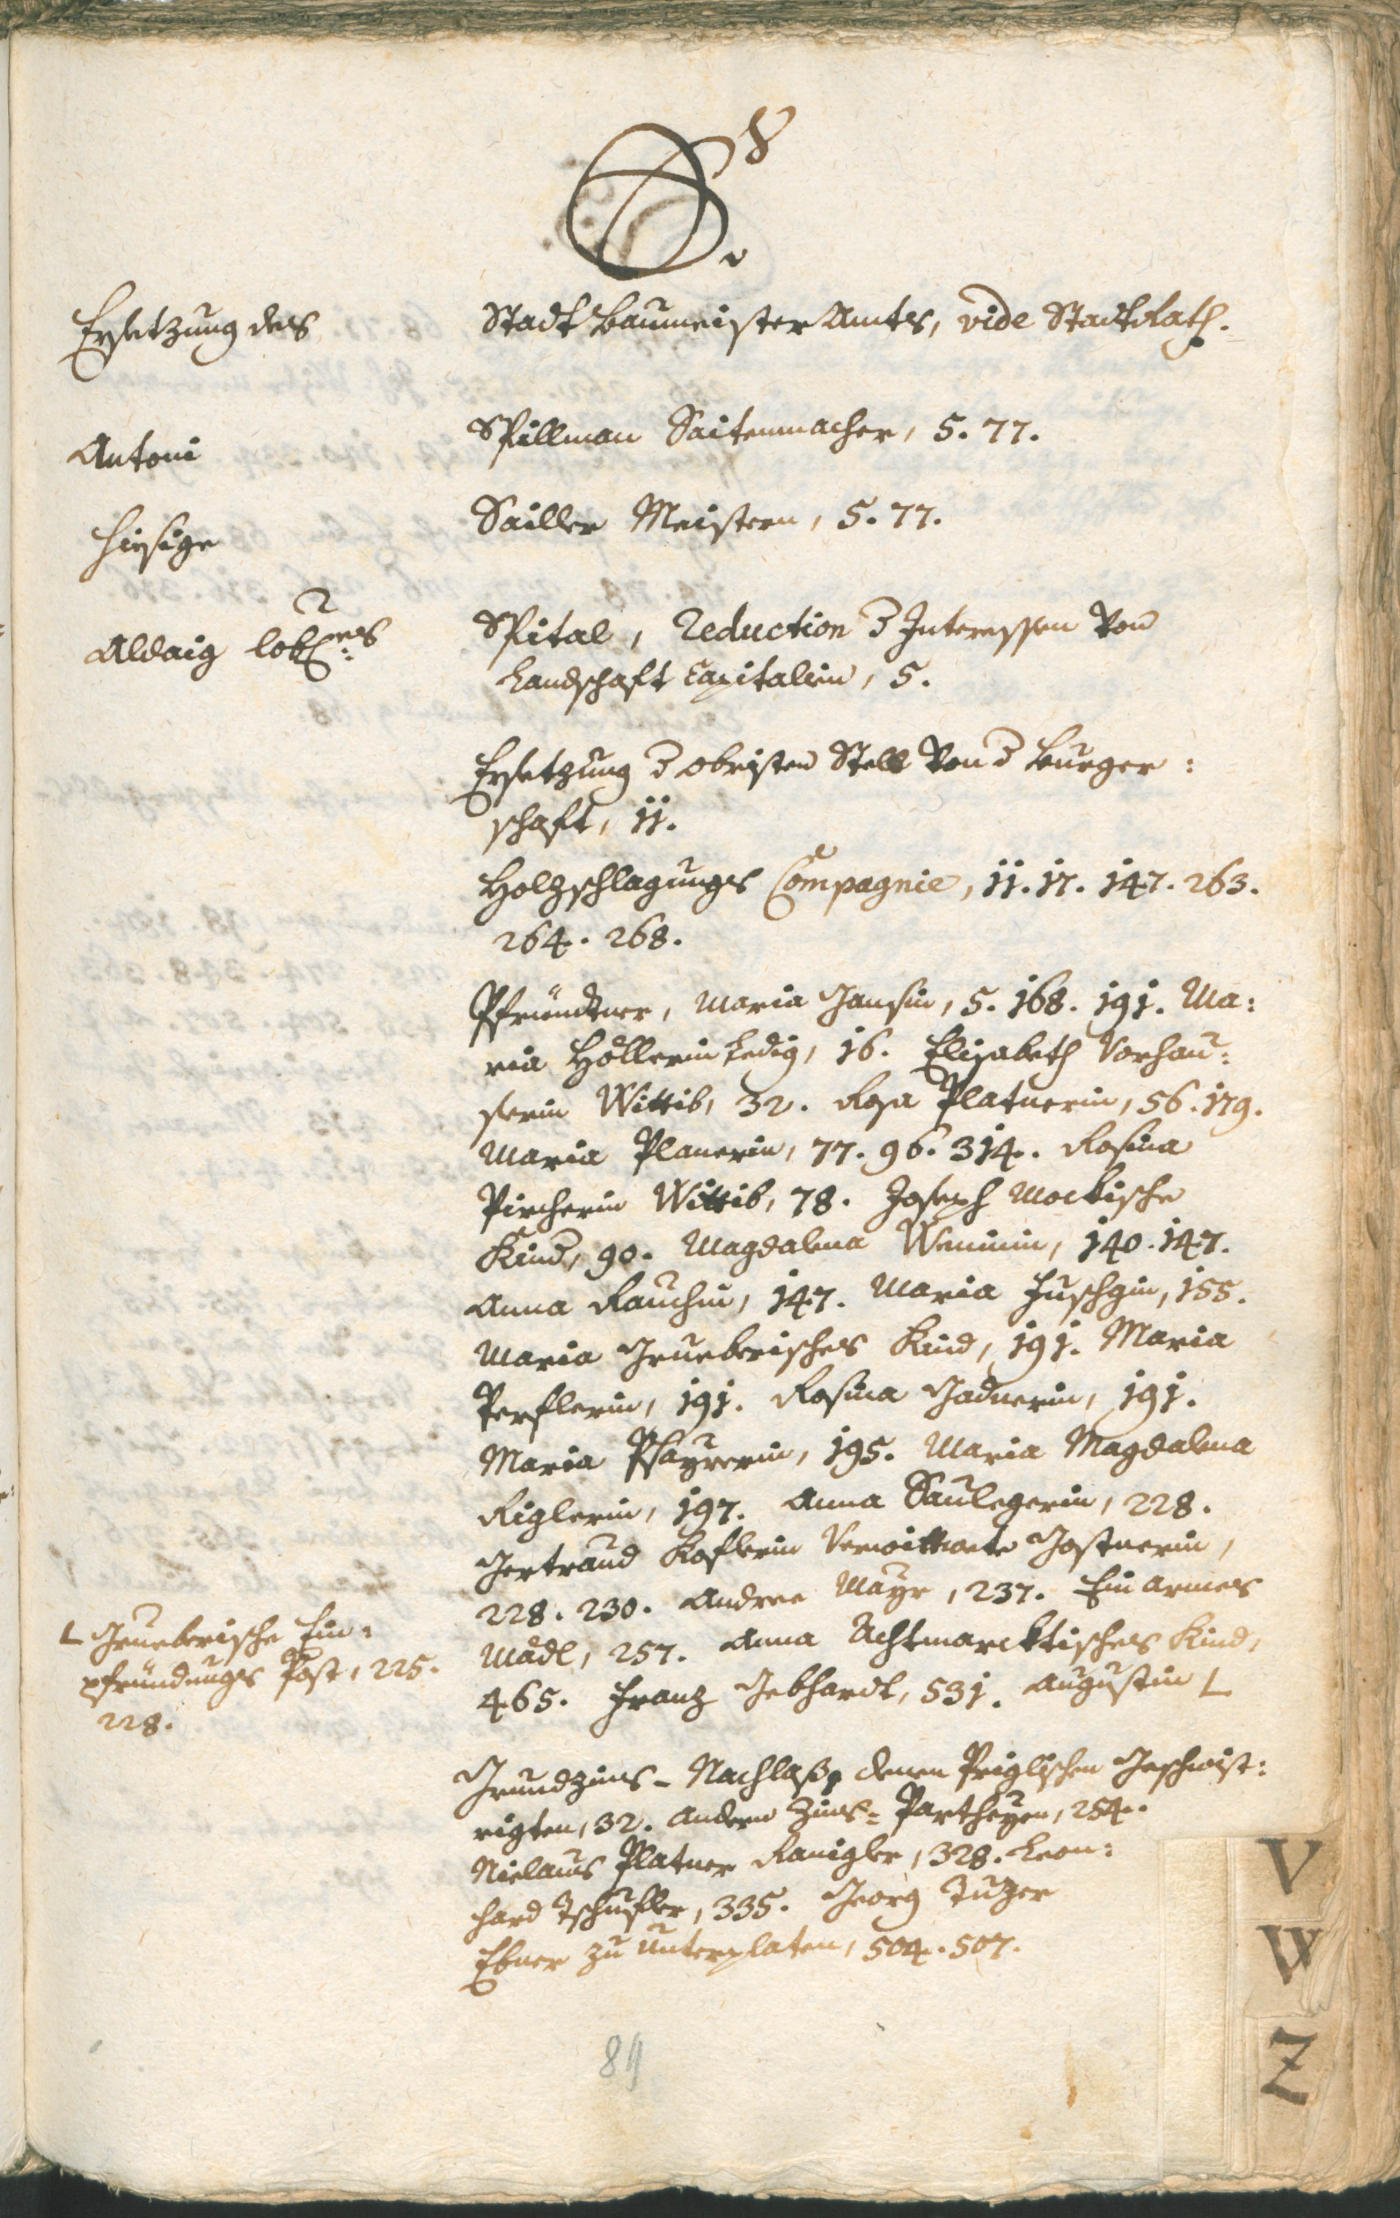 S.
Ersetzung des Stadt Baumeister Amts, vide Stadt Rath.
Antoni Spillman Saitenmacher, 5. 77.
hiesige Sailler Meistern, 5. 77.
Aldaig lobl:es Spital, Reduction d Interessen von
Landschaft Capitalien, 5.
Ersetzung d obristen Stell von d Burger:
schaft, 11.
Holzschlagungs Compagnie, 11. 17. 147. 263.
264. 268.
Pfründtner, Maria Jansin, 5. 168. 191. Ma:
ria Höllerin Ledig, 16. Elisabeth Vorhau:
serin Wittib, 32. Rosa Platnerin, 56. 179.
Maria Planerin, 77. 96. 314. Rosina
Pircherin Wittib, 78. Joseph Mockische
Kind, 90. Magdalena 140. 147.
Anna Rauchin, 147. Maria 155.
Maria Grueberisches Kind, 191. Maria
191. Rosina Gadnerin, 191.
Maria Mayrerin, 195. Maria Magdalena
Riglerin, 197. Anna Saulegerin, 228.
Gertraud Koflerin Verwittwete Gostnerin,
228. 230. Andree Mayr, 237. Ein armes
Mädl, 257. Anna Achtmarcktisches Kind,
465. Franz Gebhardt, 531. Augustin L
L Grueberische Ein:
pfründungs Post, 225.
228.
Grundzins-Nachlaß, denen Priglischen Geschwist:
rigten, 32. Andern Zins-Partheyen, 254.
Niclaus Platner Ranigler, 328. Leon:
hard Tschufler, 335. Georg
Ebner zu Unterplaten, 504. 507.
84
V
W
Z